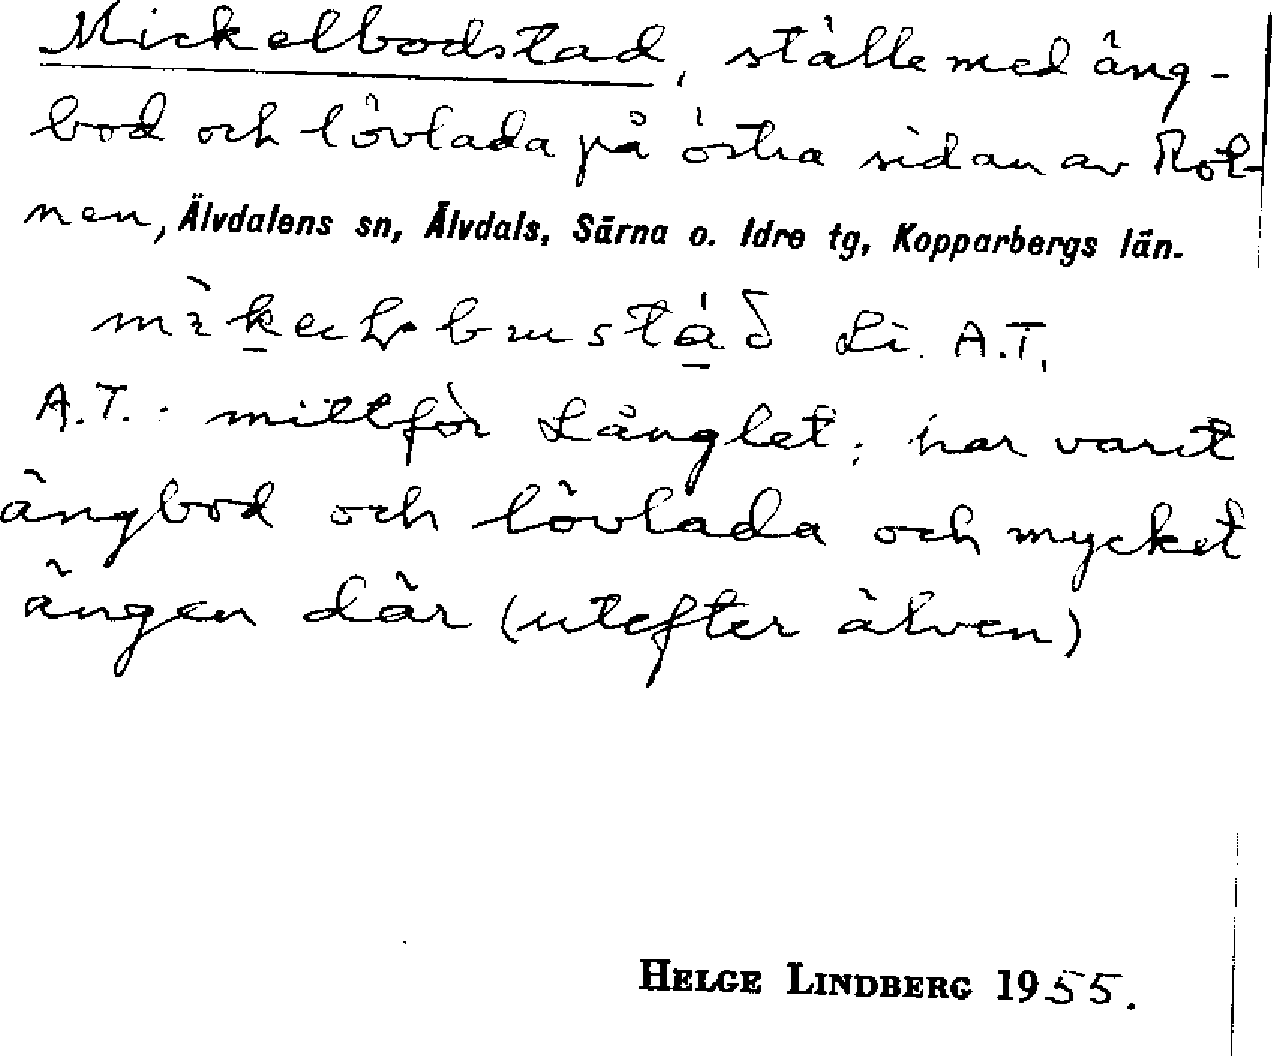 Mickelbodstad, ställe med äng-
bod och lövlada på östra sidan av Rot-
nen, Älvdalens sn, Älvdals, Särna o. Idre tg, Kopparbergs län.
Li. A.T.
A.T.: mittför Långlet; har varit
ängbod och lövlada och mycket
ängen där (utefter älven)
HELGE LINDBERG 1955.